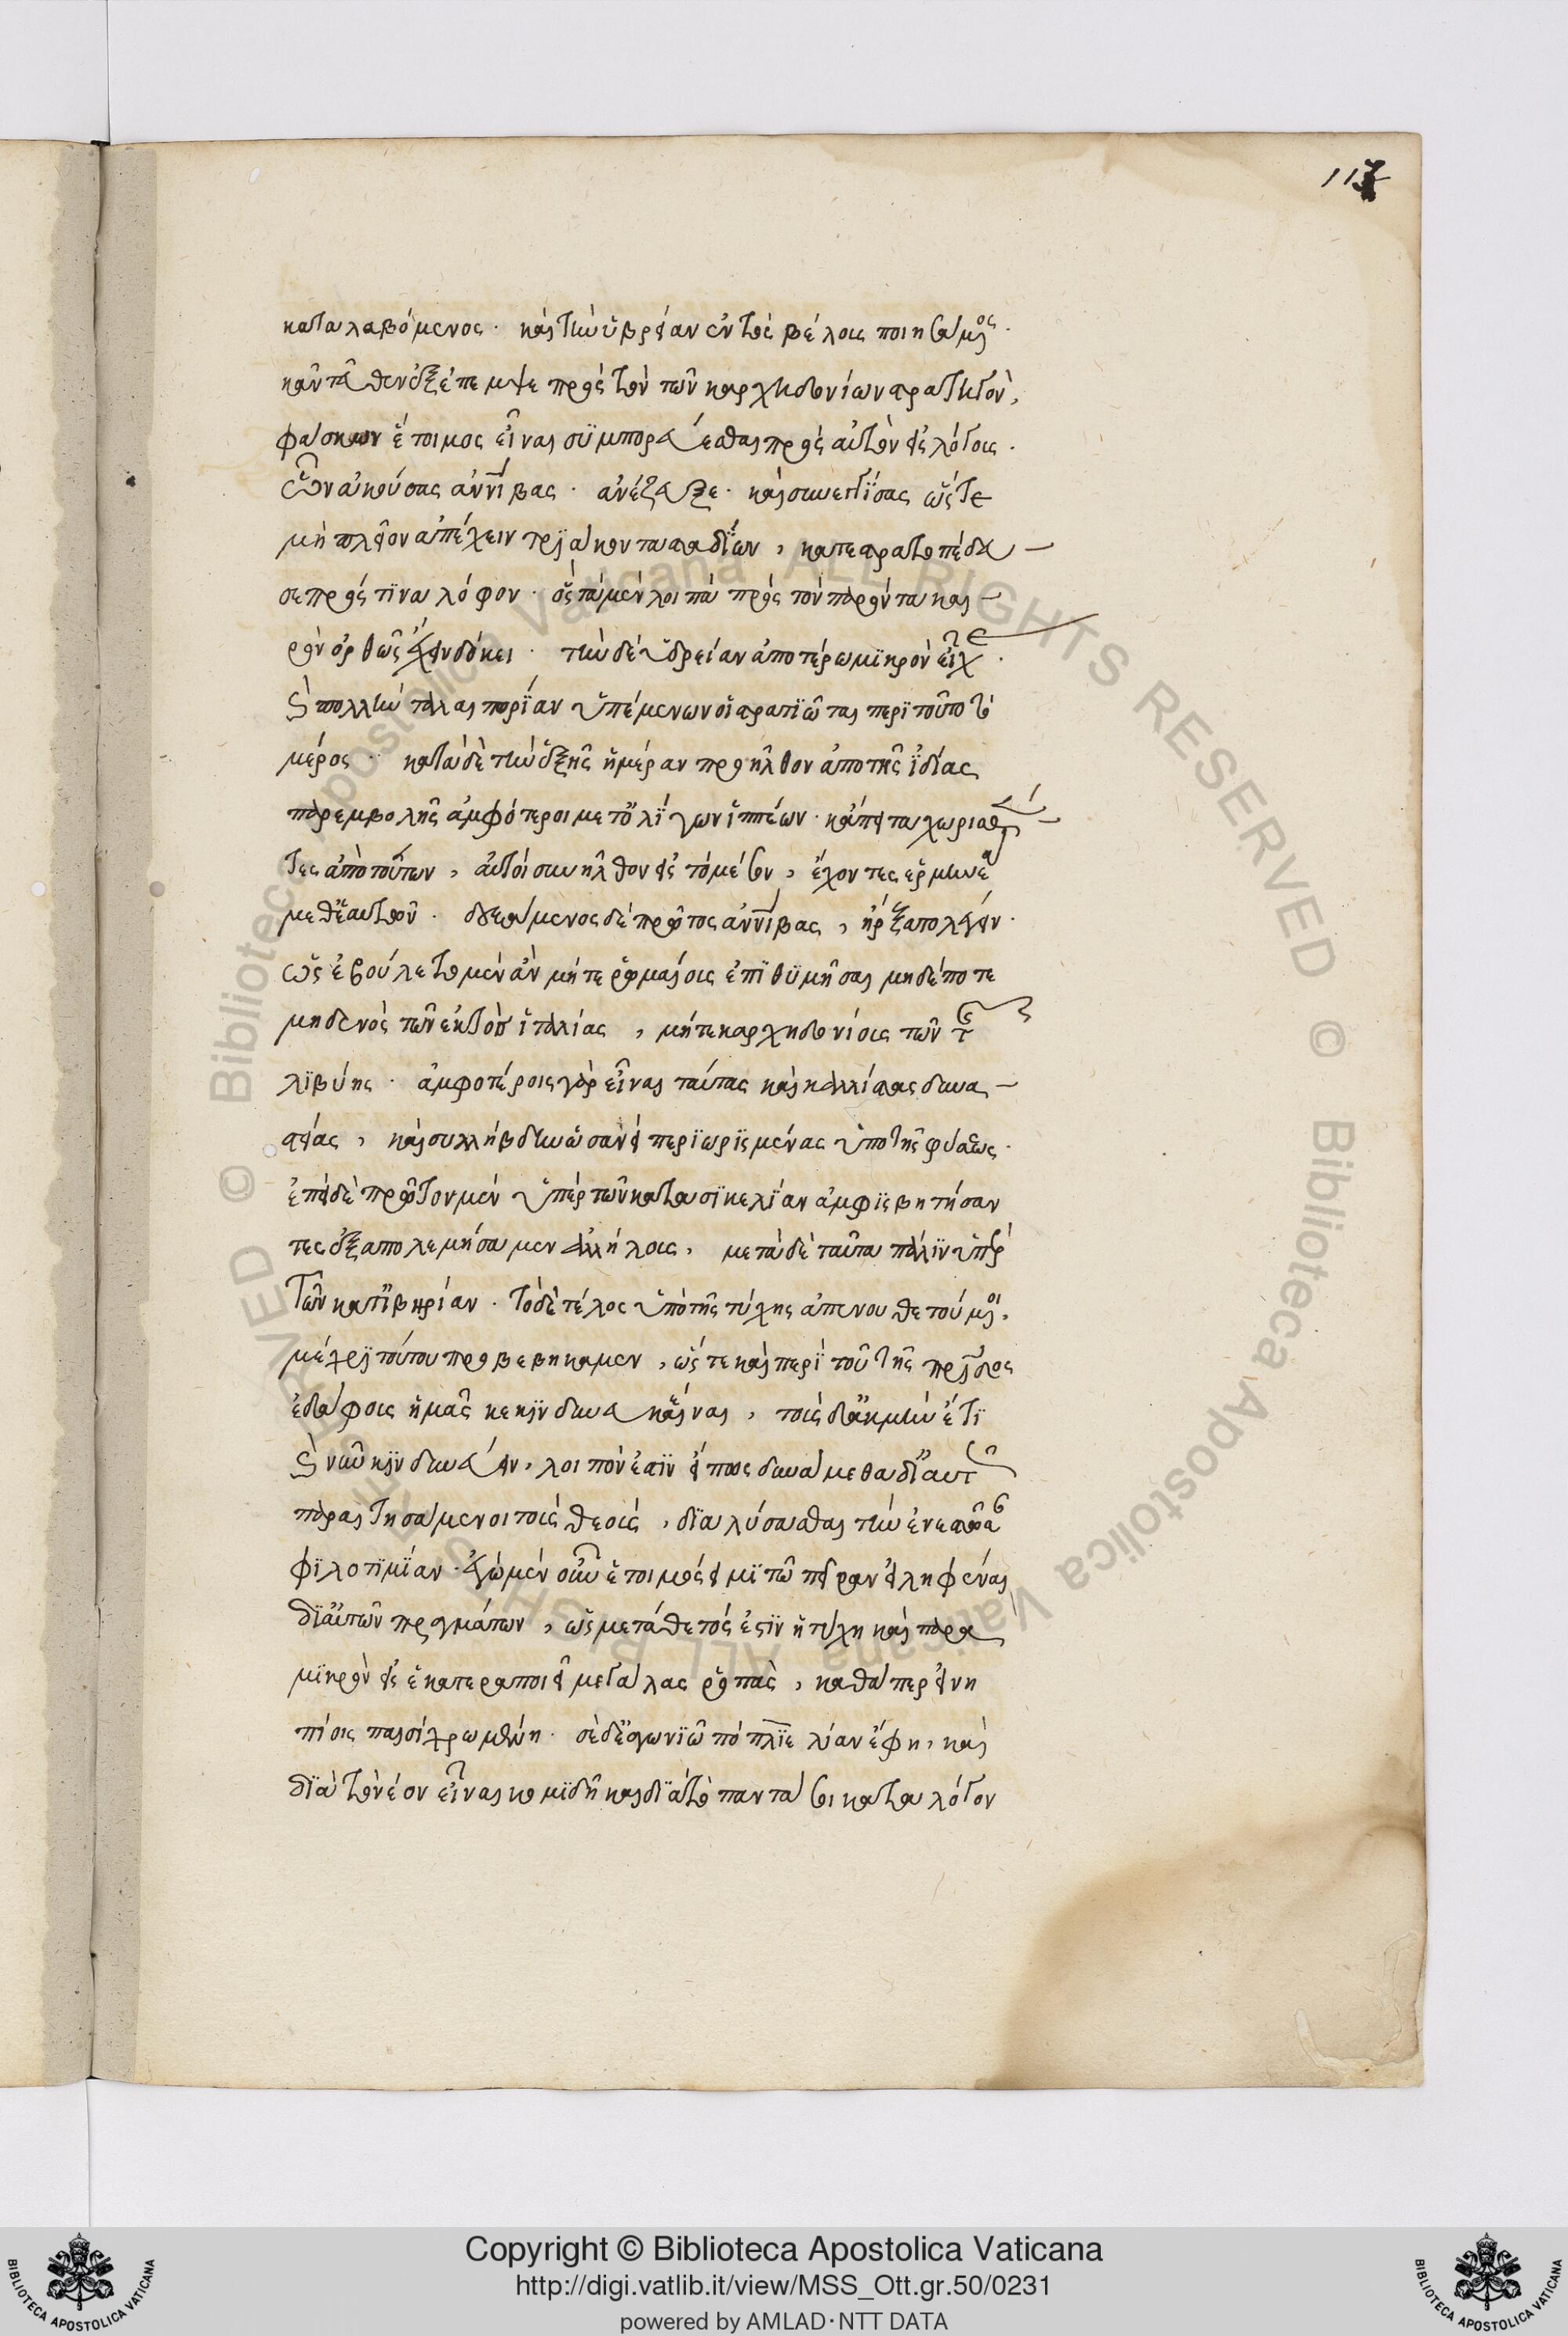 117
καταλαβόμενος· καὶ τὴν ὕβρείαν ἐντὸς βέλους ποιησάμενος·
κἀντεῦθεν ἐξέπεμψε πρὸς τὸν τῶν καρχηδονίων στρατηγὸν,
φάσκων ἕτοιμος εἶναι συμπορεύεσθαι πρὸς αὐτὸν εἰς λόγους·
ὧν ἀκούσας ἀννίβας· ἀνέζευξε· καὶ συνεγγίσας ὥστε
μὴ πλεῖον ἀπέχειν τριάκοντα σταδίων, κατεστρατοπέδευ
σε πρός τινα λόφον· ὃς τὰ μὲν λοιπὰ πρὸς τὸν παρόντα και
ρὸν ὀρθῶς ἔχειν ἐδόκει· τὴν δὲ ὑδρείαν ἀποτέρω μικρὸν εἶχε·
καὶ πολλὴν ταλαιπορίαν ὑπέμενων οἱ στρατιῶται περὶ τοῦτο τὸ
μέρος· κατὰ δὲ τὴν ἑξῆς ἡμέραν προῆλθον ἀπὸ τῆς ἰδίας
παρεμβολῆς ἀμφότεροι μετ' ὀλίγων ἱππέων· κἄπειτα χωρισθέν
τες ἀπὸ τούτων, αὐτοὶ συνῆλθον εἰς τὸ μέσον, ἔχοντες ἑρμηνέα
μεθ' ἑαυτῶν· δεξιάμενος δὲ πρῶτος ἀννίβας, ἤρξατο λέγειν·
ὡς ἐβούλετο μὲν ἂν μήτε ῥωμαίοις ἐπιθυμῆσαι μηδέποτε
μηδενὸς τῶν ἐκτὸς ἰταλίας, μήτε καρχηδονίοις τῶν ἐκτὸς
λιβύης· ἀμφοτέροις γὰρ εἶναι ταύτας καὶ καλλίστας δυνα
στείας, καὶ συλλήβδην ὡσανεὶ περιωρισμένας ὑπὸ τῆς φύσεως·
ἐπεὶ δὲ πρῶτον μὲν ὑπὲρ τῶν κατὰ σικελίαν ἀμφισβητήσαν
τες ἐξεπολεμήσαμεν ἀλλήλοις, μετὰ δὲ ταῦτα πάλιν ὑπὲρ
τῶν κατ' ἰβηρίαν· τὸ δὲ τέλος ὑπὸ τῆς τύχης ἀπενουθετούμενοι,
μέχρι τούτου προβεβήκαμεν, ὥστε καὶ περὶ τοῦ τῆς πατρίδος
ἐδάφους ἡμᾶς κεκινδυνευκέναι, τοὺς δ' ἀκμὴν ἔτι
καὶ νῦν κινδυνεύειν, λοιπὸν ἐστὶν εἴ πως δυνάμεθα δι' αὐτῶν
παραιτησάμενοι τοὺς θεοὺς, διαλύσασθαι τὴν ἐνεστῶσαν
φιλοτιμίαν· ἐγὼ μὲν οὖν ἕτοιμός εἰμι τῷ πεῖραν εἰληφέναι
δι' αὐτῶν πραγμάτων, ὡς μετάθετός ἐστιν ἡ τύχη καὶ παρὰ
μικρὸν εἰς ἑκάτερα ποιεῖ μεγάλας ῥοπὰς, καθάπερ εἰ νη
πίοις παισὶ χρωμένη· σὲ δ' ἀγωνιῶ πόπλιε λίαν ἔφη, καὶ
διὰ τὸ νέον εἶναι κομιδῆ καὶ διὰ τὸ πάντα σοι κατὰ λόγον
Copyright © Biblioteca Apostolica Vaticana
http://digi.vatlib.it/view/MSS_Ott.gr.50/0231
powered by AMLAD·NTT DATA